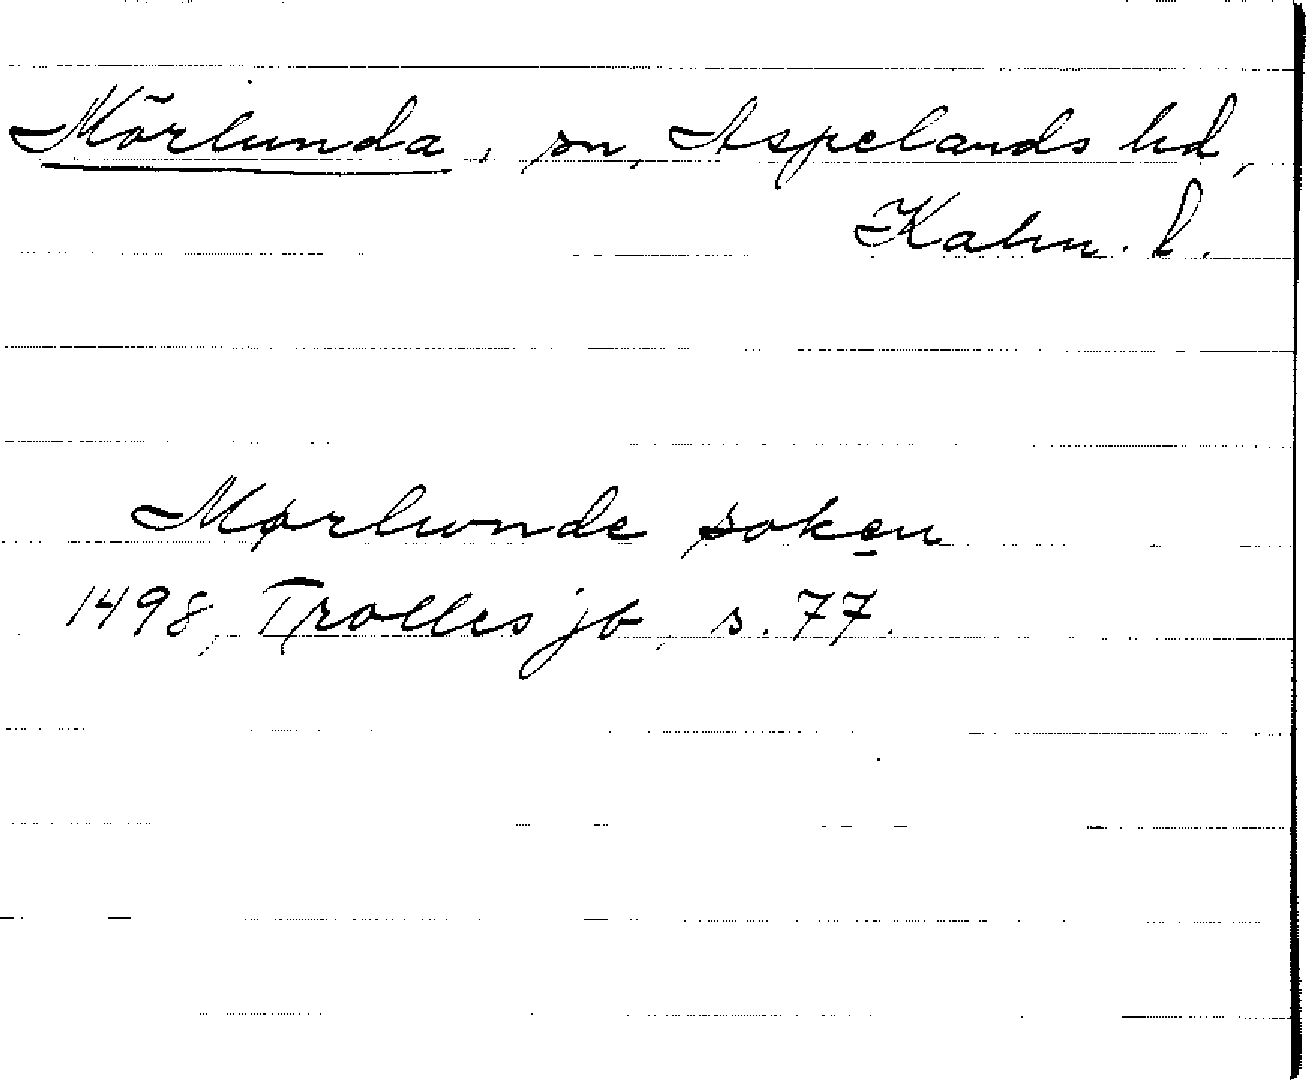 Mörlunda, sn, Aspelands hd,
Kalm. l.
Mørlwnde soken
1498, Trolles jb, s. 77.